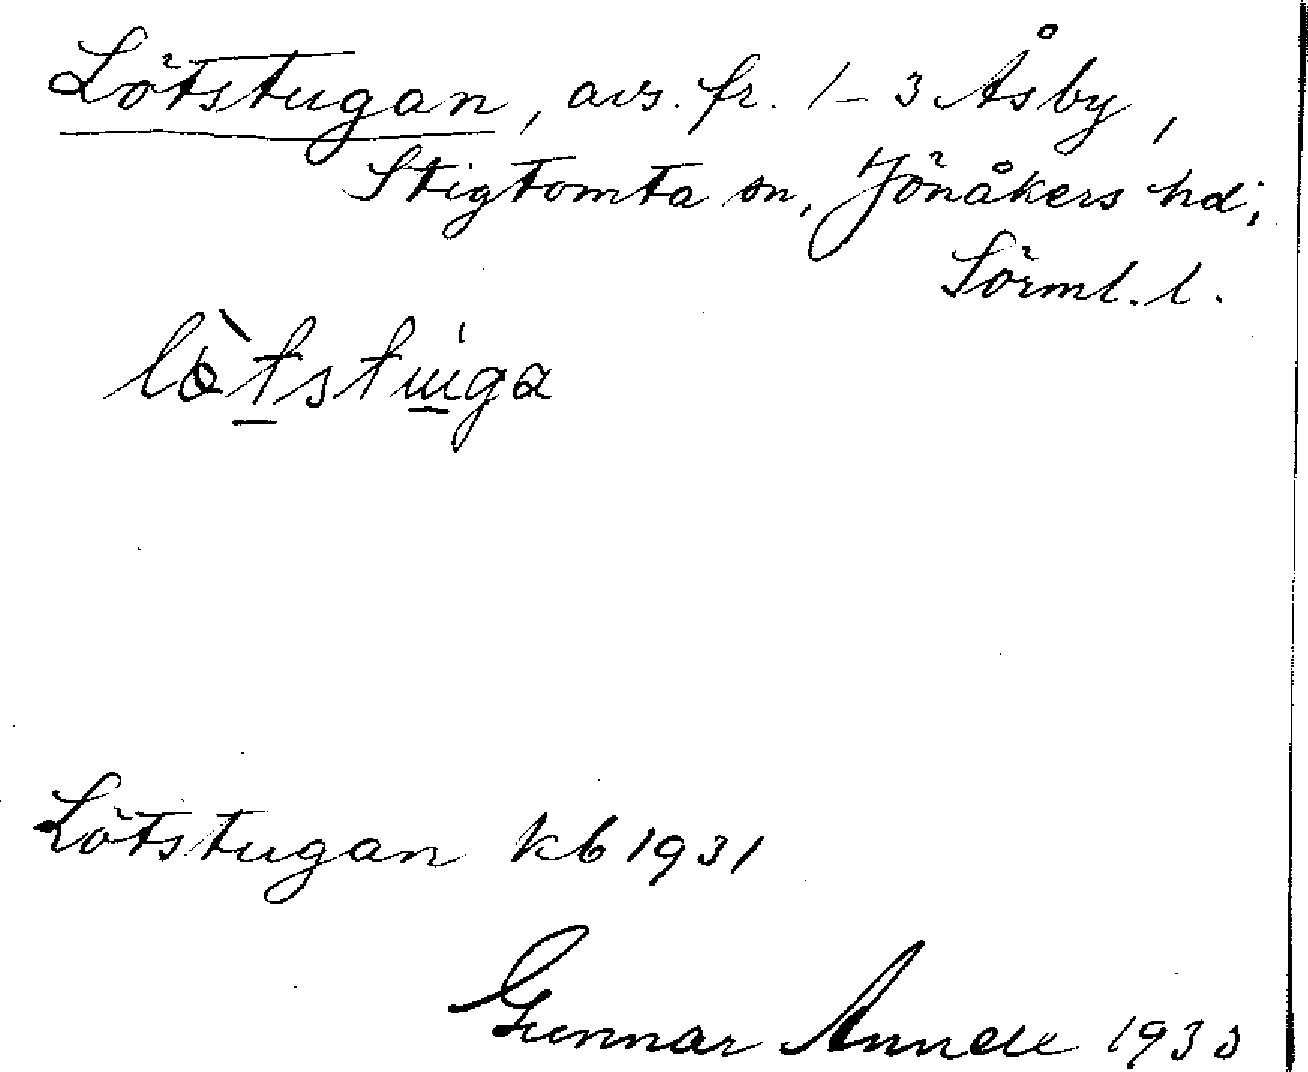 Lötstugan, avs. fr. 1-3 Åsby,
Stigtomta sn, Jönåkers hd;
Sörml. l.
Lötstugan kb 1931
Gunnar 1933